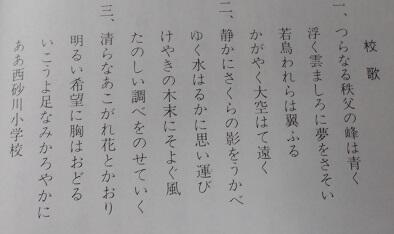 校歌
一、つらなる秩父の峰は青く
浮く雲ましろに夢をさそい
若鳥われらは翼ふる
かがやく大空はて遠く
二、静かにさくらの影をうかべ
ゆく水はるかに思い運び
けやきの木末にそよぐ風
たのしい調べをのせていく
三、清らなあこがれ花とかおり
明るい希望に胸はおどる
いこうよ足なみかろやかに
ああ西砂川小学校